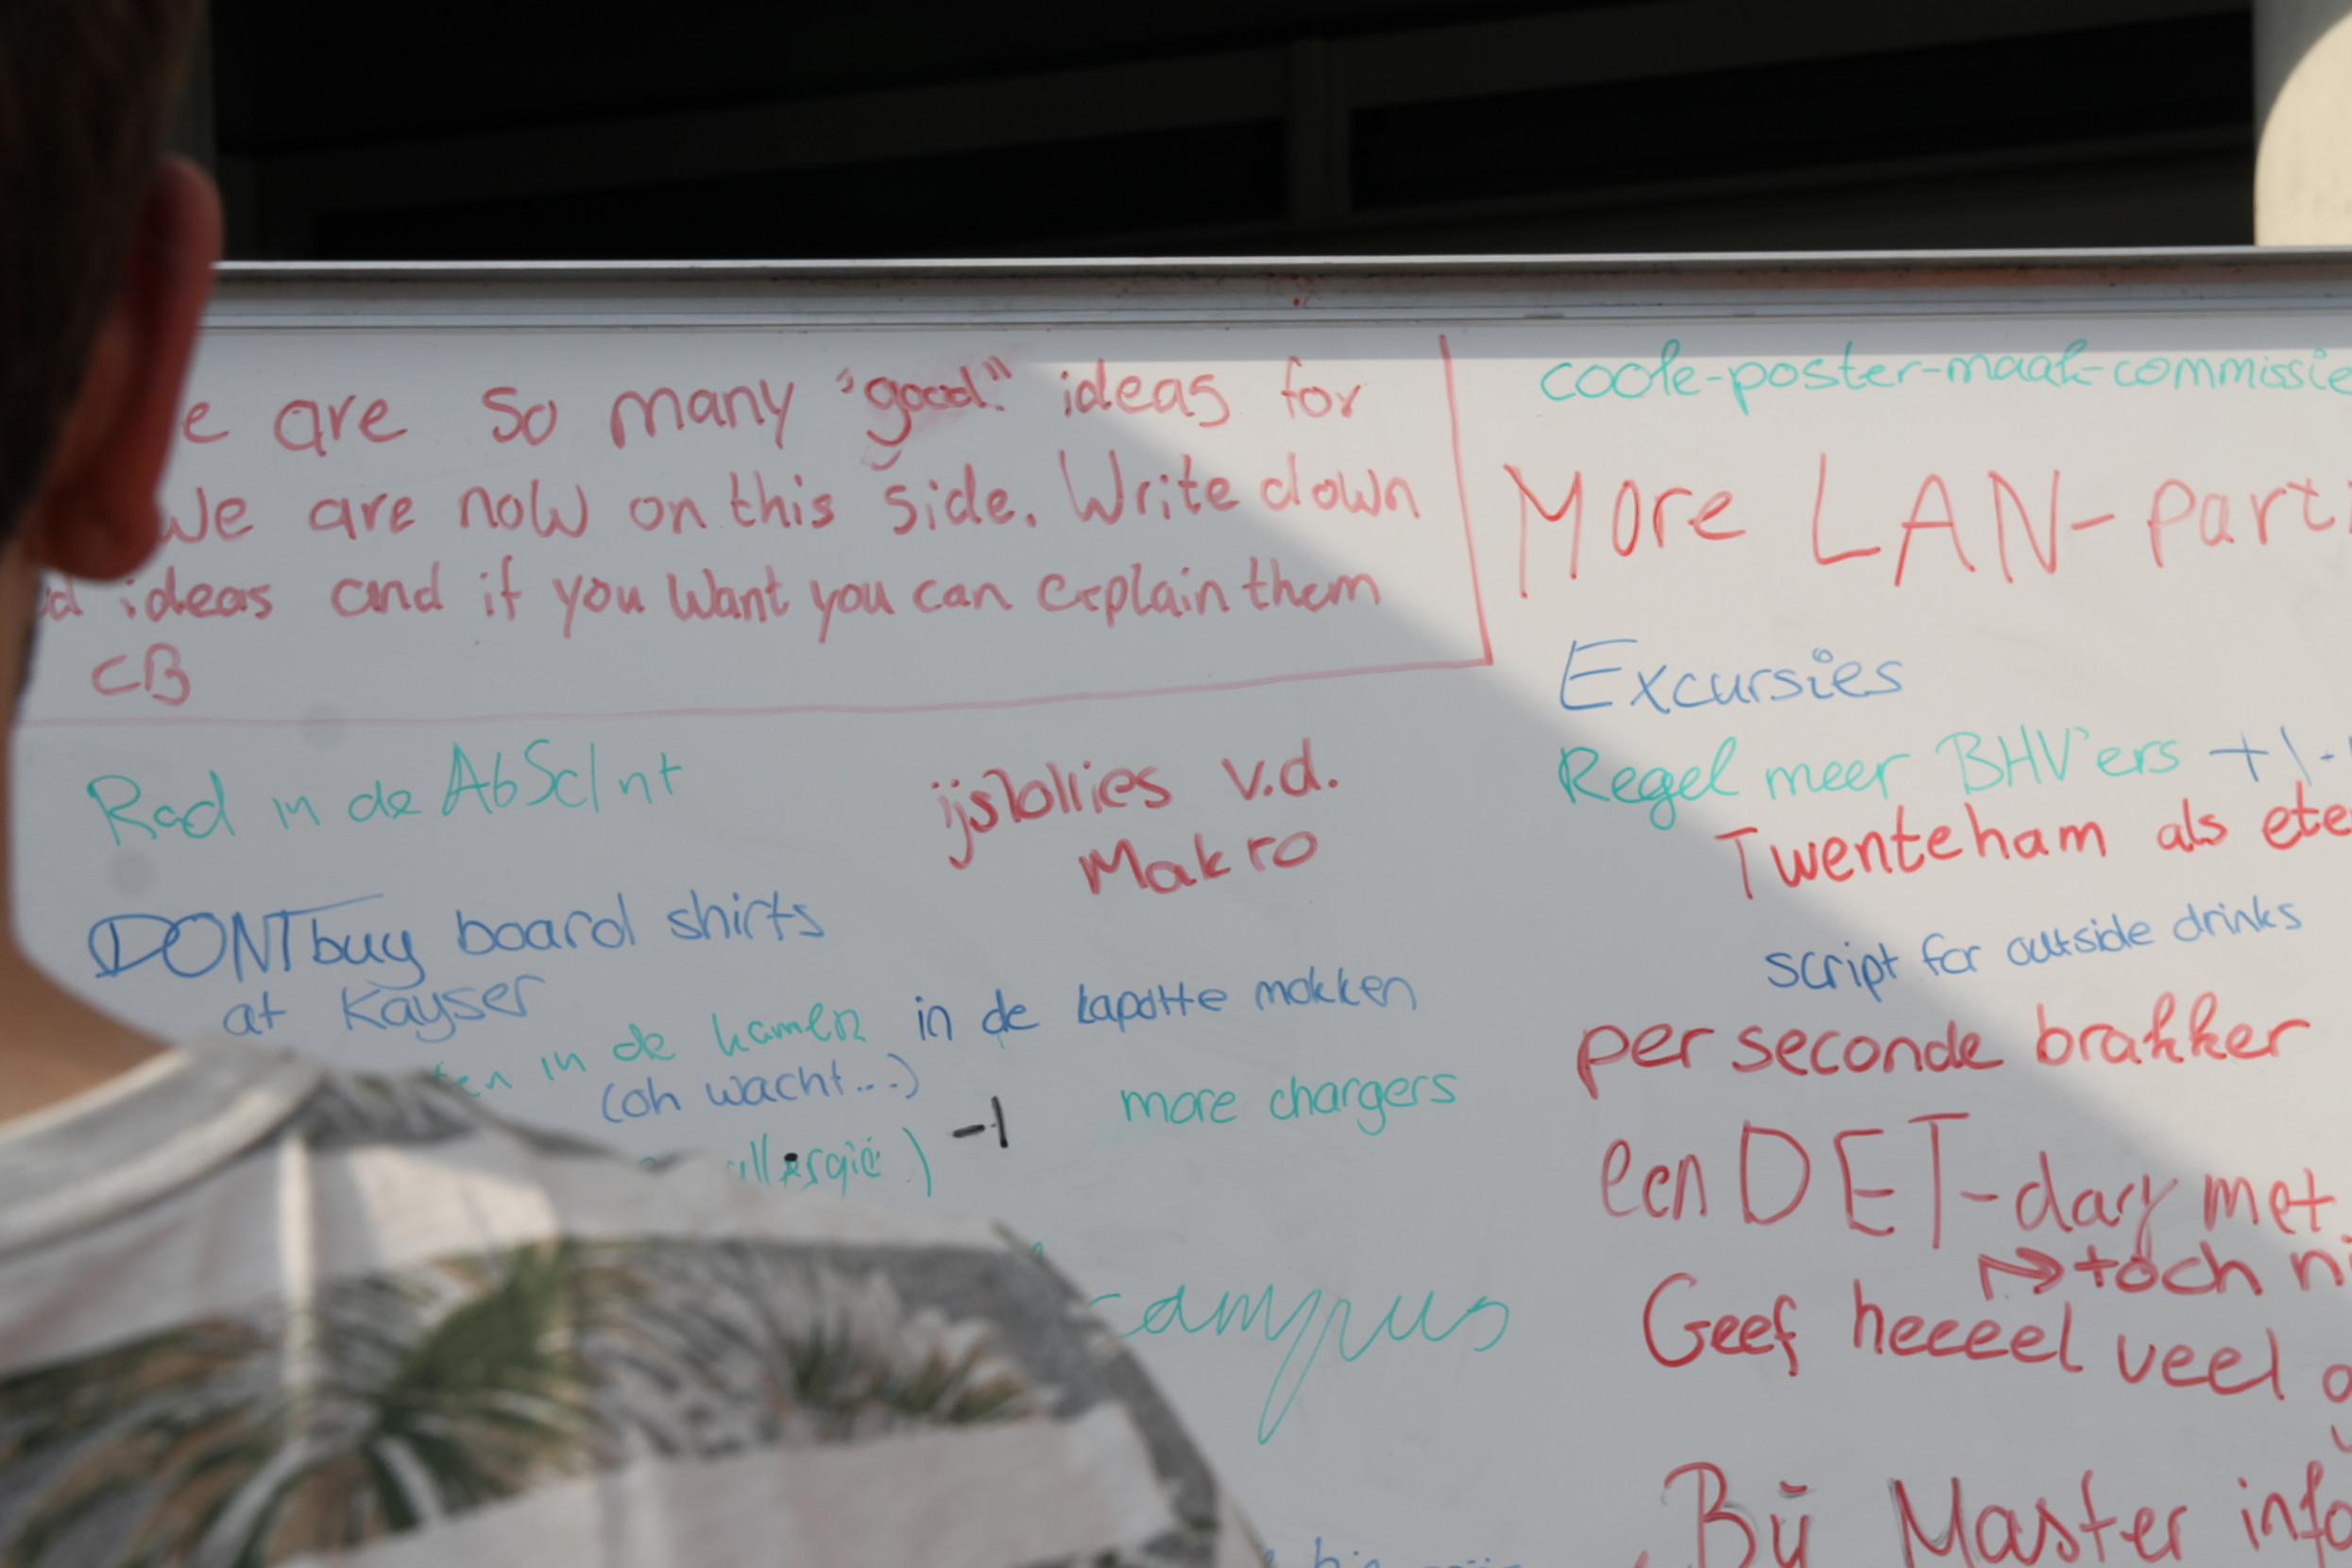 are so many "good" ideas for
We are now on this side. Write down
ideas and if you want you can explain them
CB
Rad in de AbScInt
ijslollies v.d.
Makro
DONT buy board shirts
at Kayser
in de kamer
in de kapotte mokken
(oh wacht...)
more chargers
allergie) -1
campus
coole-poster-maak-commissie
More LAN-part
Excursies
Regel meer BHV'ers +1
Twenteham als ete
script for outside drinks
per seconde brakker
een DET-day met
→ toch ni
Geef heeeel veel
Bij Master info